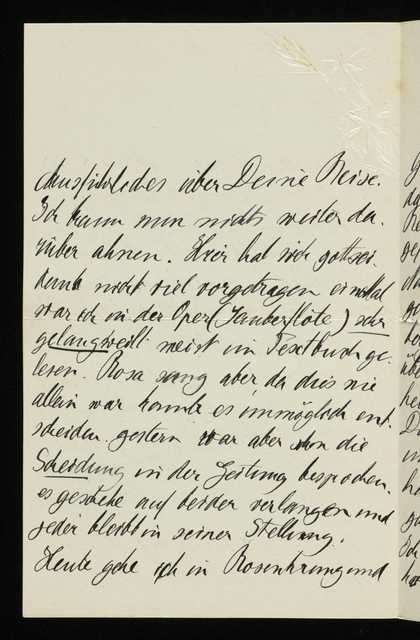 Ausführliches über Deine Reise.
Ich kann nun nichts weiter da-
rüber ahnen. Hier hat sich gottsei-
dank nicht viel vorgetragen einmal
war ich in der Oper (Zauberflöte) sehr
gelangweilt meist im Textbuch ge-
lesen. Rosa sang aber, da dies nie
allein war konnte es unmöglich ent-
scheiden. gestern war aber schon die
Scheidung in der Zeitung besprochen.
es geschehe auf beider verlangen und
jeder bleibt in seiner Stellung.
Heute gehe ich in Rosenkrung und